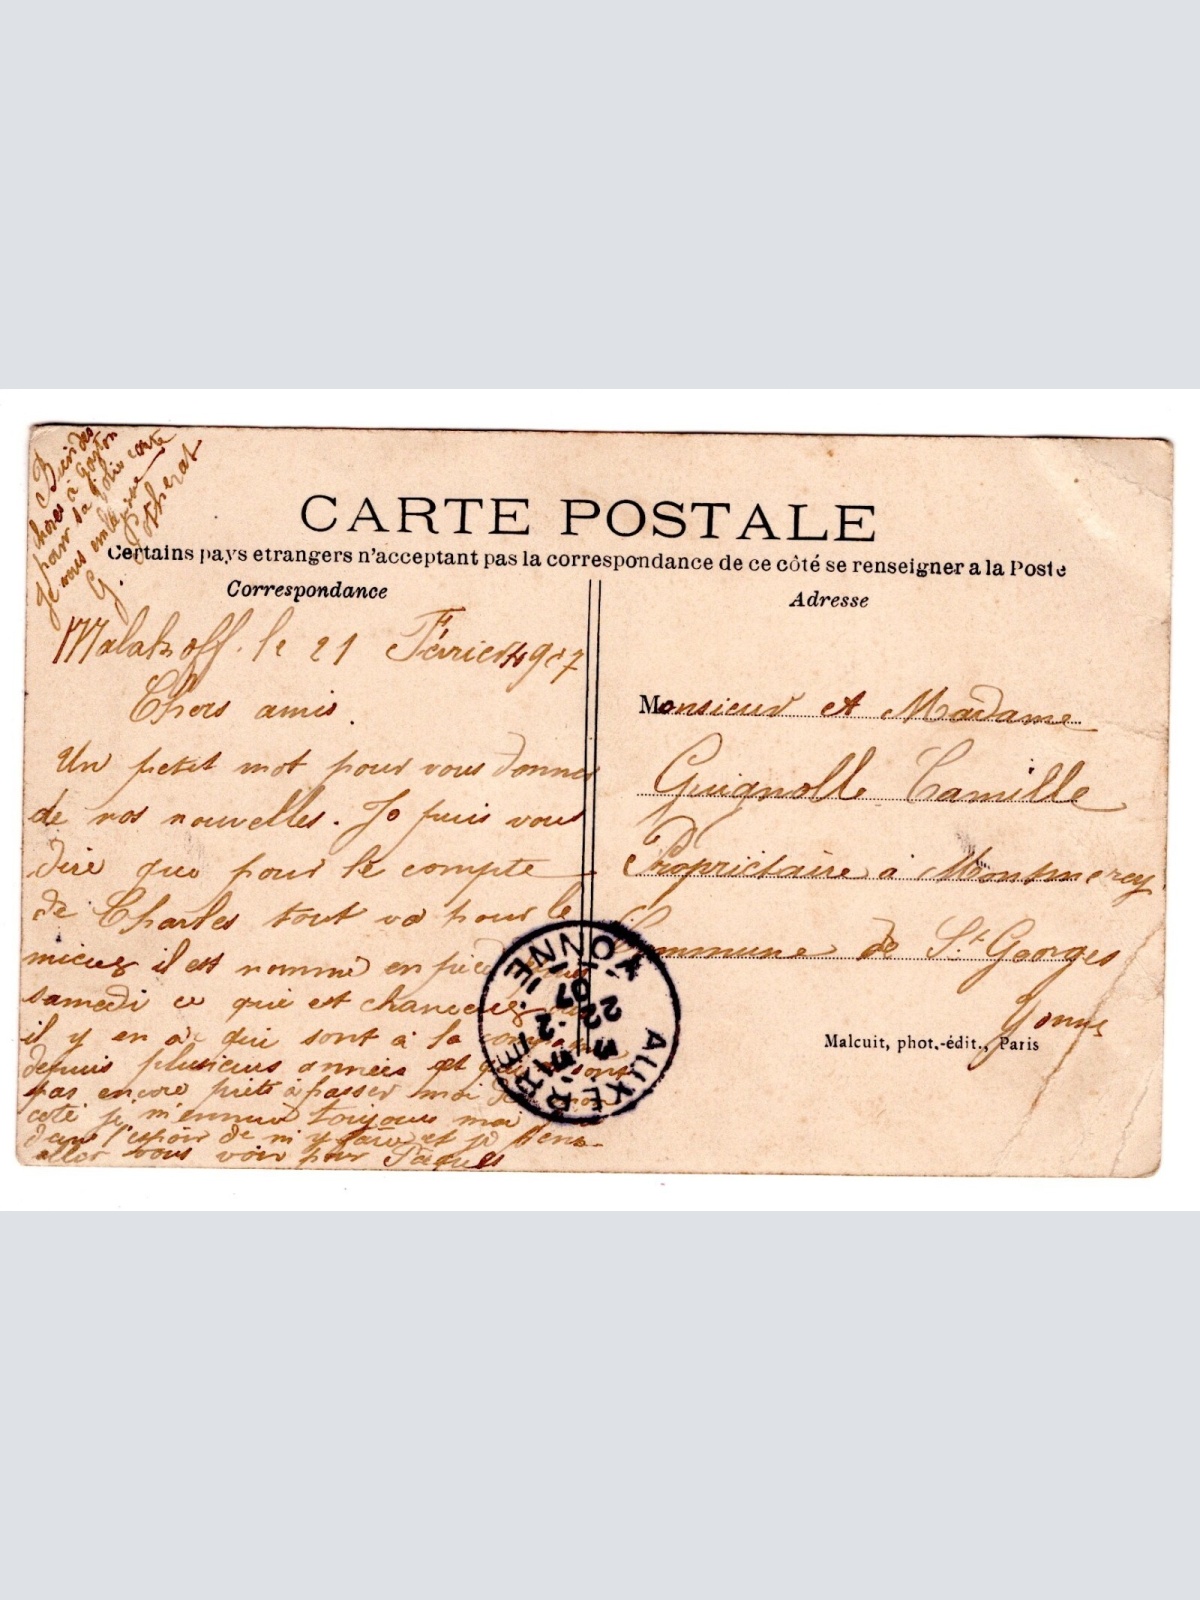 CARTE POSTALE
Certains pays etrangers n'acceptant pas la correspondance de ce côté se renseigner a la Poste
Correspondance
Malakoff. le 21 Février 1907
Chers amis.
Un petit mot pour vous donner
de nos nouvelles. Je puis vous
dire que pour le compte
de Charles tout va pour le
mieux il est nommé en pied
samedi ce qui est chanceux
il y en a qui sont à la
depuis plusieurs années et qui sont
pas encore prêts à passer moi de mon
coté je m'ennuie toujours mai
dans l'espoir de m'y faire et je pense
aller vous voir pour Paques
Bien des
choses à Gaston
pour sa jolie carte
Je vous embrasse
G.
Adresse
Monsieur et Madame
Guignolle Camille
Propriétaire à Montmercy
Commune de St Georges
Yonne
Malcuit, phot.-édit., Paris
AUXERRE
22 -2
07
YONNE